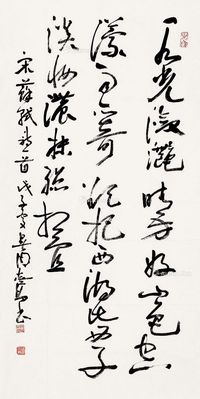 水光瀲灩晴方好山色空
濛雨亦奇欲把西湖比西子
淡妝濃抹總相宜
宋蘇軾詩一首戊子